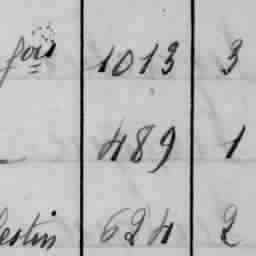 çois 1013 3
489 1
lestin 624 2